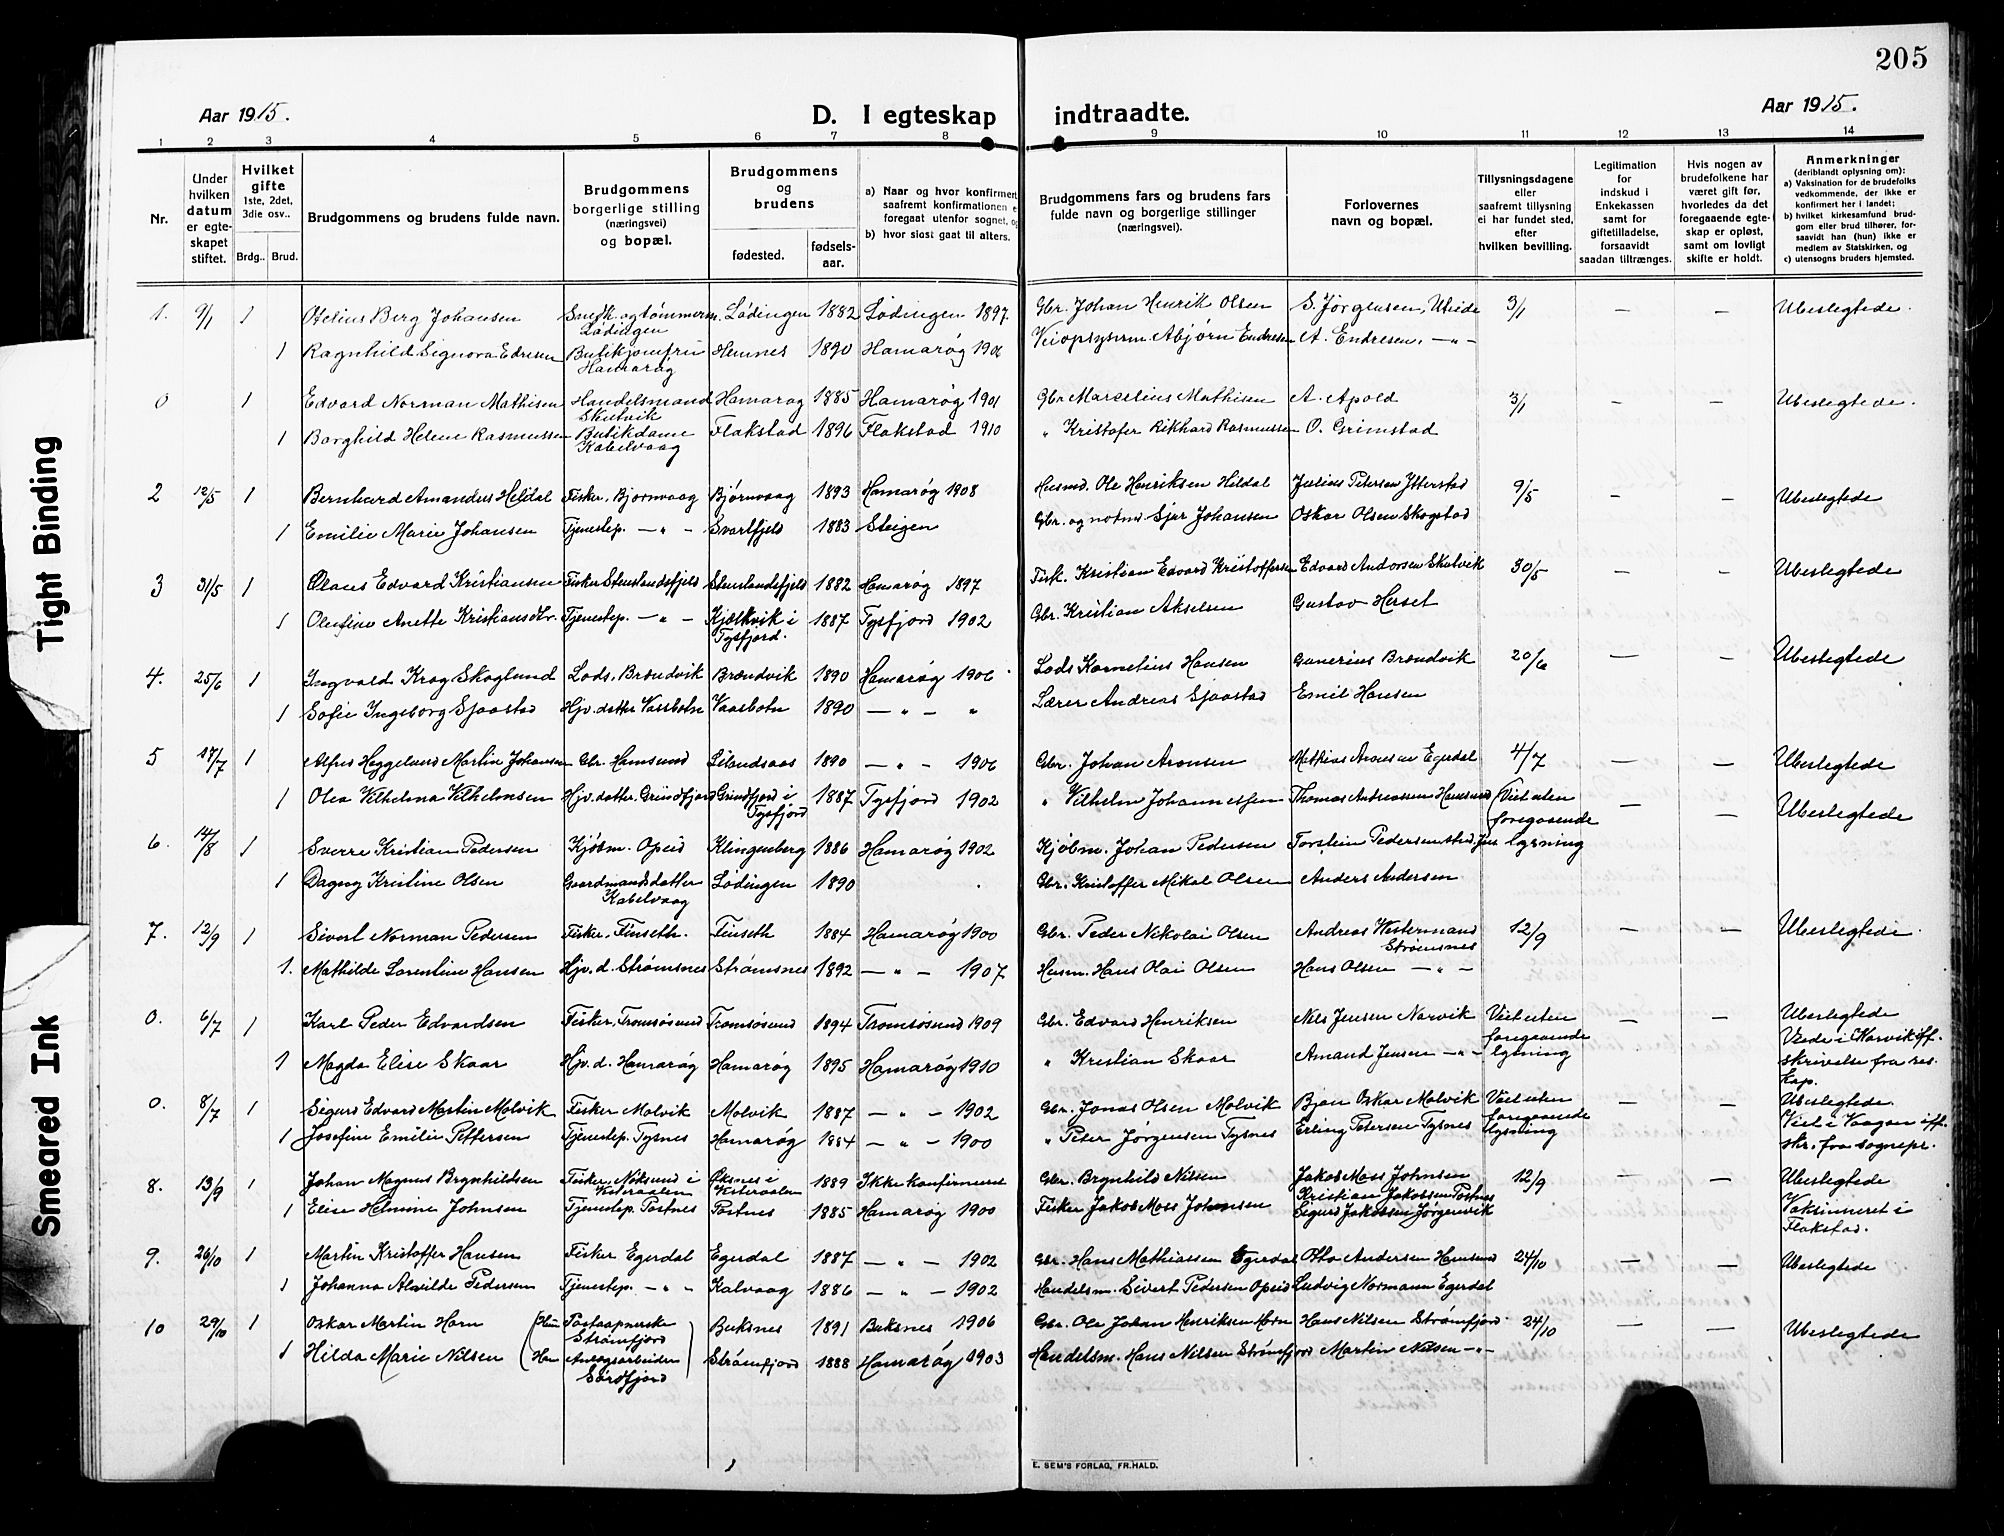 205
Aar 1915.
D. I egteskap indtraadte.
Aar 1915.
1 2 3 4 5 6 7 8 9 10 11 12 13 14
Nr.
Under hvilken datum er egteskapet stiftet.
Hvilket gifte 1ste, 2det, 3die osv..
Brdg.. Brud.
Brudgommens og brudens fulde navn.
Brudgommens borgerlige stilling (næringsvei) og bopæl.
Brudgommens og brudens
fødested.
fødselsaar.
a) Naar og hvor konfirmert saafremt konfirmationen e foregaat utenfor sognet, og
b) hvor sidst gaat til alters.
Brudgommens fars og brudens fars fulde navn og borgerlige stillinger (næringsvei).
Forlovernes navn og bopæl.
Tillysningsdagene eller saafremt tillysning ei har fundet sted, efter hvilken bevilling.
Legitimation for indskud i Enkekassen samt for giftetilladelse, forsaavidt saadan tiltrænges.
Hvis nogen av brudefolkene har været gift før, hvorledes da det foregaaende egteskap er opløst, samt om lovligt skifte er holdt.
Anmerkninger (deriblandt oplysning om):
a) Vaksination for de brudefolks vedkommende, der ikke er konfirmert her i landet;
b) hvilket kirkesamfund brudgom eller brud tilhører, forsaavidt han (hun) ikke er medlem av Statskirken, og
c) utensogns bruders hjemsted.
1. 9/1 1 Otelius Berg Johansen Snedk. og tømmerm. Lødingen Lødingen 1882 Lødingen 1897 Gbr. Johan Henrik Olsen S. Jørgensen, 3/1 — — Ubeslegtede.
1 Ragnhild Signora Edresen Butikjomfru Hamarøg Hemnes 1890 Hamarøg Veiopsynsm. Abjørn Endresen A. Endresen. — " —
0 1 Edvard Norman Mathisen Handelsmand Skutvik Hamarøg 1885 Hamarøg 1901 Gbr Marselius Mathisen A. Apold 3/1 — — Ubeslegtede.
1 Borghild Helene Rasmussen Butikdame Kabelvaag Flakstad 1896 Flakstad 1910 " Kristofer Rikhard Rasmussen O. Grimstad
2 12/5 1 Bernhard Amandus Heldal Fisker, Bjørnvaag Bjørnvaag 1893 Hamarøg 1908 Husmd. Ole Henriksen Hildal Julius Petersen Ytterstad 9/5 — — Ubeslegtede
1 Emilie Marie Johansen Tjenestep. — " — Svartfjeld 1883 Steigen Gbr. og notmd Sjur Johansen Oskar Olsen Skogstad
3 31/5 1 Olaus Edvard Kristiansen Fisker Stenslandsfjeld Stenslandsfjeld 1882 Hamarøg 1897 Fisk. Kristian Edvard Kristoffersen Edvard Andorsen Skutvik 30/5 — — Ubeslegtede
1 Olufine Anette Kristiansdtr. Tjenestep. — " — Kjelkvik i Tysfjord. 1887 Tysfjord 1902 Gbr. Kristian Akselsen Gustav Herset
4. 25/6 1 Ingvald Krog Skoglund Lods, Brøndvik Brændvik 1890 Hamarøg 1906 Lods Kornelius Hansen Gunerius Brændvik 20/6 — — Ubeslegtede
1 Sofie Ingeborg Sjaastad Hjv. datter Vassbotn Vaasbotn 1890 — " — " Lærer Andreas Sjaastad Emil Hansen
5 17/7 1 Alfred Heggeland Martin Johansen Gbr. Hamsund 1890 — " — 1906 Gbr. Johan Aronsen Mathias Aronsen Egerdal 4/7 — — Ubeslegtede
1 Olea Vilhelma Vilhelmsen Hjv. datter. Grundfjord Grundfjord i Tysfjord 1887 Tysfjord 1902 " Vilhelm Johannessen Thomas Andreassen Hamsund
6. 14/8 1 Sverre Kristian Pedersen Kjøbm. Opeid Klingenberg 1886 Hamarøg 1902 Kjøbm. Johan Pedersen Torstein Pedersen Viet uten foregaaende lysning — — Ubeslegtede
1 Dagny Kristine Olsen Gaardmandsdatter Kabelvaag Lødingen 1890 Gbr. Kristoffer Mikal Olsen Anders Andersen
7. 12/9 1 Sivert Norman Pedersen Fisker, Finseth. Finseth 1884 Hamarøg 1900 Gbr. Peder Nikolai Olsen Andreas Westermand Strømsnes 12/9 — — Ubeslegtede.
1. Mathilde Lorentine Hansen Hjv. d. Strømsnes Strømsnes 1892 — " — 1907 Husm. Hans Olai Olsen Hans Olsen — " —
0. 6/7 1 Karl Peder Edvardsen Fisker, Tromsøsund Tromsøsund 1894 Tromsøsund 1909 Gbr. Edvard Henriksen Nils Jensen Narvik Viet uten foregaaende lysning — — Ubeslegtede Viede i Narvik iflf. skrivelse fra res. kap.
1 Magda Elise Skaar Hjv. d. Hamarøg Hamarøg 1895 Hamarøg 1910 " Kristian Skaar Amand Jensen — " —
0. 8/7 1 Sigurd Edvard Martin Molvik Fisker Molvik Molvik 1887 — " — 1902 Gbr. Jonas Olsen Molvik Bjan Oskar Molvik Viet uten foregaaende lysning — — Ubeslegtede. Viet i Vaagan iflf. skr. fra sognepr.
1 Josefine Emilie Pettersen Tjenestep. Tysnes Hamarøg 1884 — " — 1900 " Peter Jørgensen Tysnes Erling Petersen Tysnes
8. 13/9 1 Johan Magnus Brynhildsen Fisker, i Vesteraalen Øksnes i Vesteraalen 1889 Ikke konfirmeret Gbr. Brynhild Nilsen Jakob Moss Johnsen 12/9 — — Ubeslegtede Vaksineret i Flakstad.
1 Elise Helmine Johnsen Tjenestep. Tostnes Tostnes 1885 Hamarøg 1900 Fisker Jakob Moss Johnsen Kristian Jakobsen Tostnes Sigurd Jakobsen Jørgenvik
9. 26/10 1 Martin Kristoffer Hansen Fisker Egerdal Egerdal 1887 — " — 1902 Gbr. Hans Mathiassen Egerdal Otto Andersen Hamsund 24/10 — — Ubeslegtede
1 Johanna Alvilde Pedersen Tjenestep. — " " Kalvaag 1886 — " — 1902 Handelsm. Sivert Pedersen Opeid Ludvig Normann Egerdal
10 29/10 1 Oskar Martin Horn (Hun Postaapnerske Strømfjord Buksnes 1891 Buksnes 1906 Gbr. Ole Johan Henriksen Horn Hans Nilsen Strømfjord 24/10 — — Ubeslegtede
1 Hilda Marie Nilsen (Han Anlægsarbeider Sørdfjord Strømfjord 1888 Hamarøg 1903 Handelsm. Hans Nilsen Strømfjord Martin Nilsen — " —
E. SEM'S FORLAG, FR.HALD.
Tight Binding
Smeared Ink